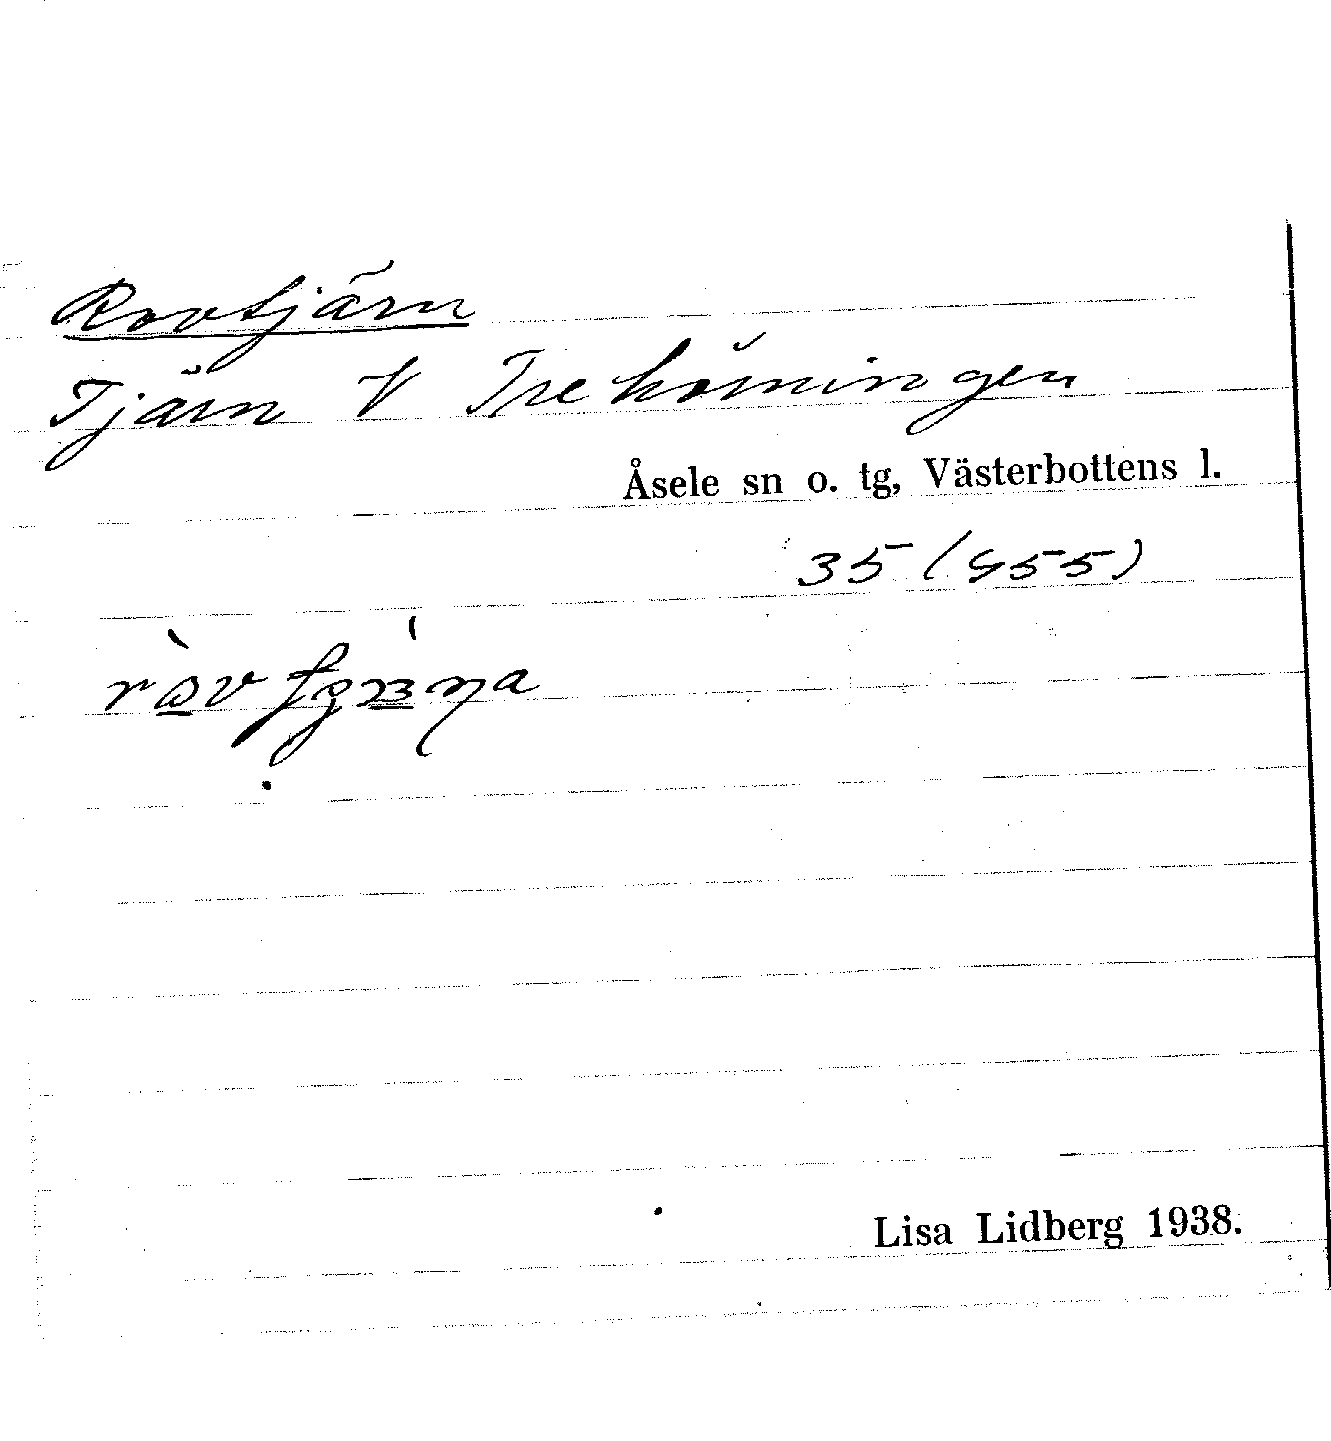 Rovtjärn
Tjärn V Trehörningen
Åsele sn o. tg, Västerbottens l.
35 (455)
Lisa Lidberg 1938.